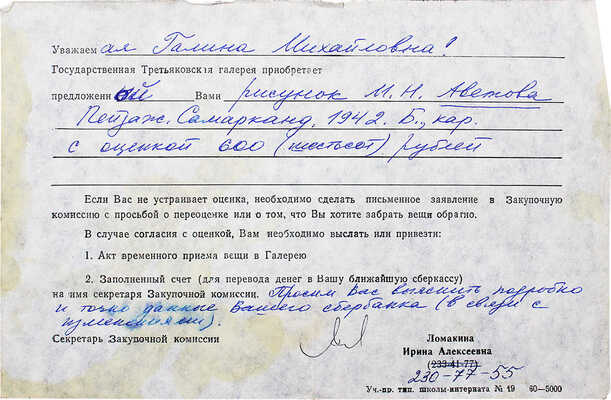 Уважаемая Галина Михайловна!
Государственная Третьяковская галерея приобретает
предложенный Вами рисунок М. Н. Аветова
Пейзаж. Самарканд. 1942. Б., кар.
с оценкой 600 (шестьсот) рублей
Если Вас не устраивает оценка, необходимо сделать письменное заявление в Закупочную
комиссию с просьбой о переоценке или о том, что Вы хотите забрать вещи обратно.
В случае согласия с оценкой, Вам необходимо выслать или привезти:
1. Акт временного приема вещи в Галерею
2. Заполненный счет (для перевода денег в Вашу ближайшую сберкассу)
на имя секретаря Закупочной комиссии. Просим Вас выяснить подробно
и точно данные Вашего сбербанка (в связи с
изменениями).
Секретарь Закупочной комиссии
Ломакина
Ирина Алексеевна
(233-41-77)
230-77-55
Уч.-пр. тип. школы-интерната № 19 60—5000